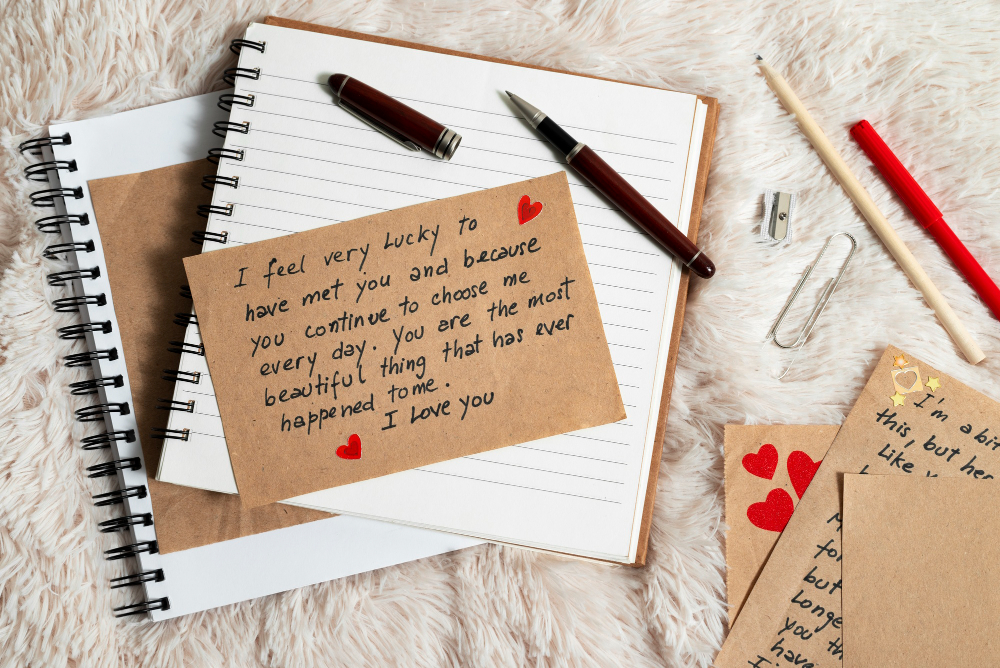 I feel very Lucky to
have met you and because
you continue to choose me
every day. You are the most
beautiful thing that has ever
happened tome.
I Love you
I'm a bit
this, but her
Like
for
but
Longe
you th
have